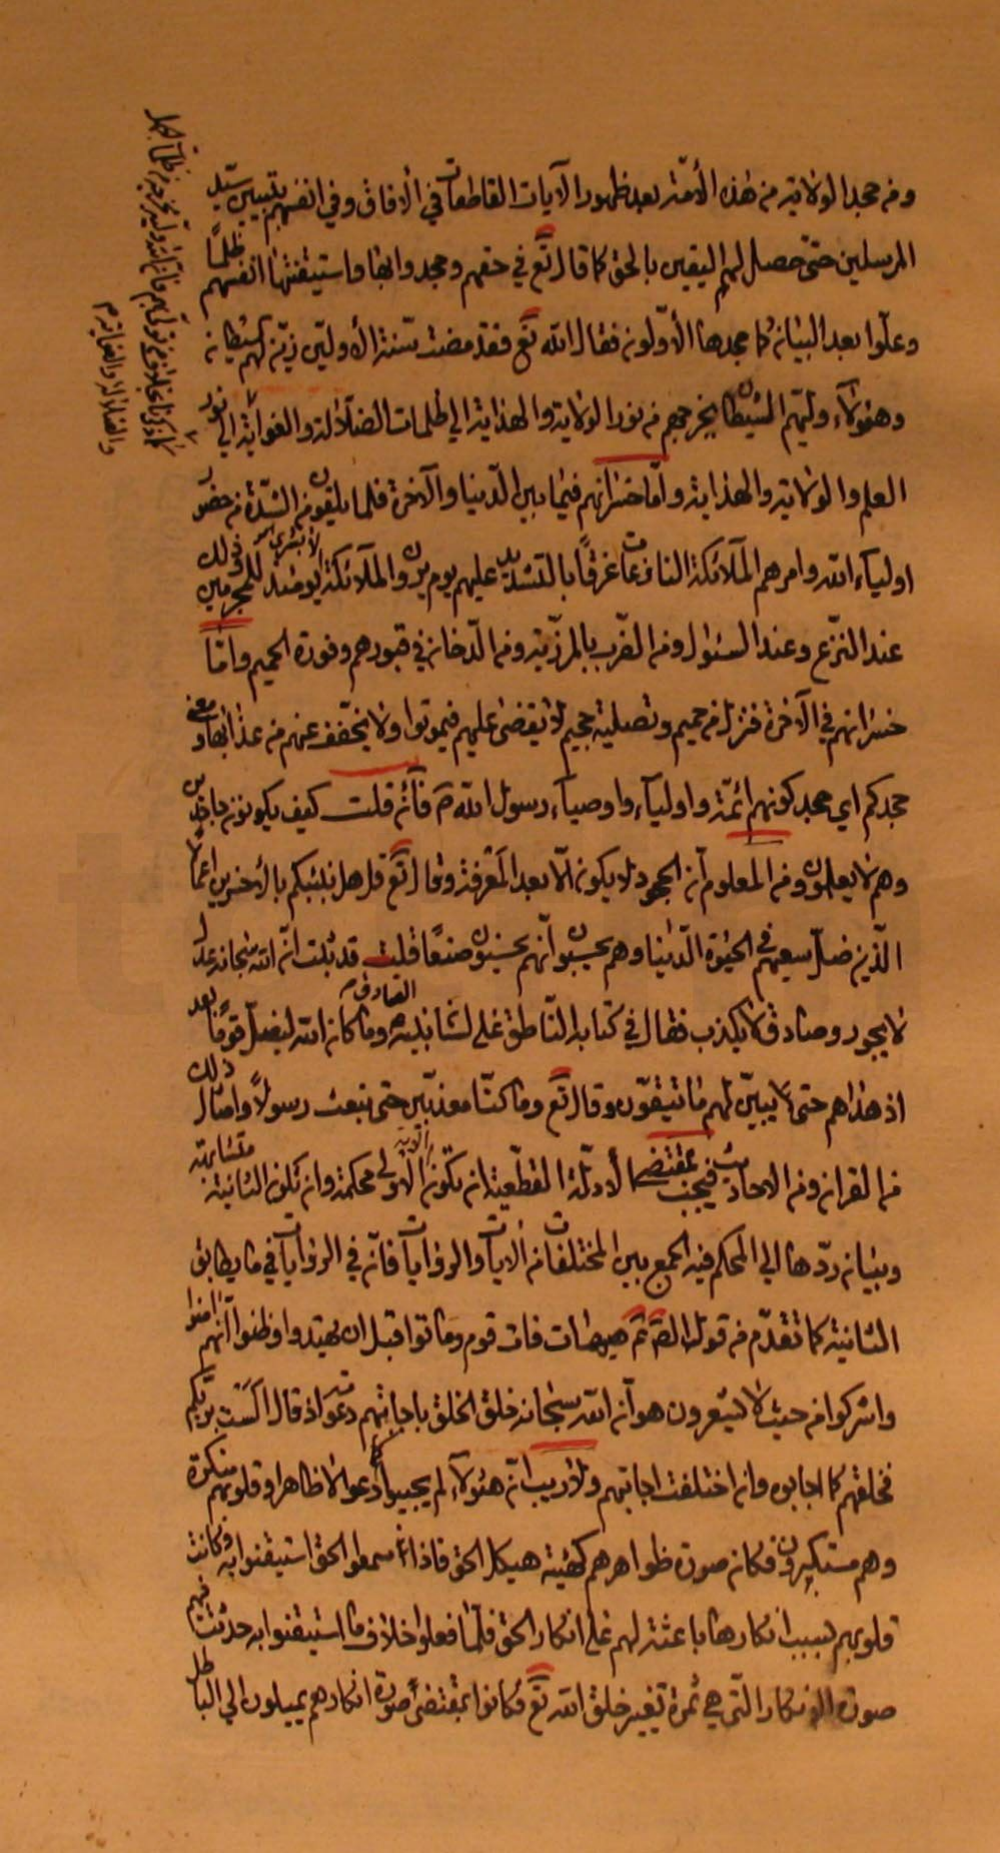 ومن جحد الولاية من هذه الأمة بعد ظهور الآيات القاطعات في الآفاق وفي انفسهم بتبيين سيد
المرسلين حتى حصل لهم اليقين بالحق كما قال تع في حقهم وجحدوا بها واستيقنتها انفسهم ظلمًا
وعلوا بعد البيان كما جحدها الأولون فقال الله تع فقد مضت سنة الأولين زين لهم الشيطان
وهؤلاء وليهم الشيطان يخرجهم من نور الولاية والهداية الى ظلمات الضلالة والغواية الى نور
العلم والولاية والهداية واما خسرانهم فيما بين الدنيا والآخرة فلما يلقون من الشدة من حضور
اولياء الله وامرهم الملائكة النازعات غرقًا بالتشديد عليهم يوم يرون الملائكة لا بشرى يومئذ للمجرمين وذلك
عند النزع وعند السئوال ومن الضرب بالمرزبة ومن الدخان في قبورهم وفورة الحميم واما
خسرانهم في الآخرة فنزل من حميم وتصلية جحيم لا يقضى عليهم فيموتوا ولا يخفف عنهم من عذابها ومعنى
جحدكم اي جحد كونهم ائمة واولياء واوصياء رسول الله ص فأن قلت كيف يكونون جاحدين
وهم لا يعلمون ومن المعلوم ان الجحود لا يكون الا بعد المعرفة وقال تع قل هل ننبئكم بالأخسرين اعمالا
الذين ضل سعيهم في الحيوة الدنيا وهم يحسبون انهم يحسنون صنعًا قلت قد ثبت ان الله سبحانه عدل
لا يجور وصادق لا يكذب فقال في كتابه الناطق على لسان نبيه الصادق وما كان الله ليضل قومًا بعد
اذ هداهم حتى يبين لهم ما يتقون وقال تع وما كنا معذبين حتى نبعث رسولًا وامثال ذلك
من القران ومن الاحاديث فيجب بمقتضى الأدلة القطعية ان تكون الآية الاولى محكمة وان تكون الثانية متشابهة
وبيان ردها الى المحكم فيه الجمع بين المختلفات من الآيات والروايات فأن في الروايات في ما يطابق
الثانية كما تقدم من قول الص ع هيهات فات قوم وماتوا قبل ان يهتدوا وظنوا انهم امنوا
واشركوا من حيث لا يشعرون هو ان الله سبحانه خلق الخلق باجابتهم دعوته اذ قال الست بربكم
فخلقهم كما اجابوه وان اختلفت اجابتهم ولا ريب ان هؤلاء لم يجيبوا كما دعوا الا ظاهرا وقلوبهم منكرة
وهم مستكبرون فكان صورة ظواهرهم كهيئة هيكل الحق فاذا سمعوا الحق استيقنوا به وكانت
قلوبهم بسبب انكارها باعثة لهم على انكار الحق فلما فعلوا خلاف ما استيقنوا به حدثت فيهم
صورة الانكار التي هي ثمرة تغيير خلق الله تع فكانوا بمقتضى صورة انكارهم يميلون الى الباطل